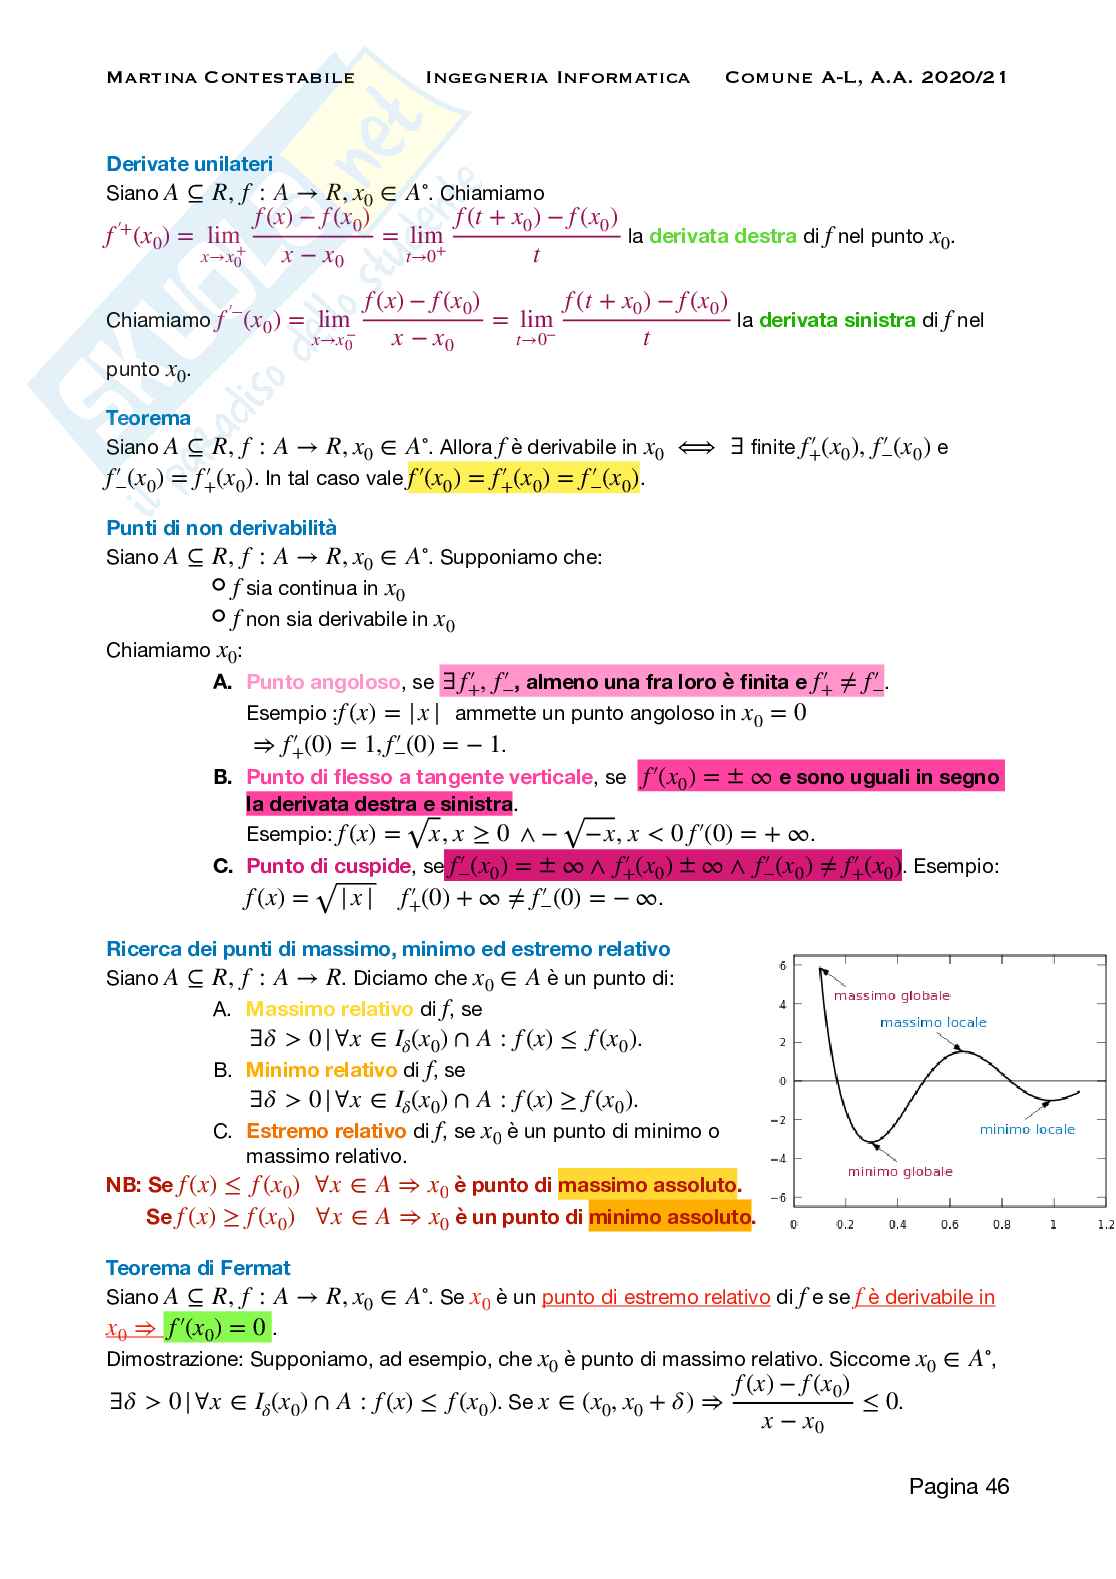 Martina Contestabile Ingegneria Informatica Comune A-L, A.A. 2020/21
SKUOLA.net
il paradiso dello studente
Derivate unilateri
Siano A ⊆ R, f : A → R, x₀ ∈ A°. Chiamiamo
f′⁺(x₀) = lim x→x₀⁺ (f(x) − f(x₀))/(x − x₀) = lim t→0⁺ (f(t + x₀) − f(x₀))/t la derivata destra di f nel punto x₀.
Chiamiamo f′⁻(x₀) = lim x→x₀⁻ (f(x) − f(x₀))/(x − x₀) = lim t→0⁻ (f(t + x₀) − f(x₀))/t la derivata sinistra di f nel
punto x₀.
Teorema
Siano A ⊆ R, f : A → R, x₀ ∈ A°. Allora f è derivabile in x₀ ⟺ ∃ finite f′₊(x₀), f′₋(x₀) e
f′₋(x₀) = f′₊(x₀). In tal caso vale f′(x₀) = f′₊(x₀) = f′₋(x₀).
Punti di non derivabilità
Siano A ⊆ R, f : A → R, x₀ ∈ A°. Supponiamo che:
○ f sia continua in x₀
○ f non sia derivabile in x₀
Chiamiamo x₀:
A. Punto angoloso, se ∃f′₊, f′₋, almeno una fra loro è finita e f′₊ ≠ f′₋.
Esempio :f(x) = |x| ammette un punto angoloso in x₀ = 0
⇒ f′₊(0) = 1, f′₋(0) = − 1.
B. Punto di flesso a tangente verticale, se f′(x₀) = ± ∞ e sono uguali in segno
la derivata destra e sinistra.
Esempio: f(x) = √x, x ≥ 0 ∧ − √−x, x < 0 f′(0) = + ∞.
C. Punto di cuspide, se f′₋(x₀) = ± ∞ ∧ f′₊(x₀) ± ∞ ∧ f′₋(x₀) ≠ f′₊(x₀). Esempio:
f(x) = √|x| f′₊(0) + ∞ ≠ f′₋(0) = − ∞.
Ricerca dei punti di massimo, minimo ed estremo relativo
Siano A ⊆ R, f : A → R. Diciamo che x₀ ∈ A è un punto di:
A. Massimo relativo di f, se
∃δ > 0 | ∀x ∈ I_δ(x₀) ∩ A : f(x) ≤ f(x₀).
B. Minimo relativo di f, se
∃δ > 0 | ∀x ∈ I_δ(x₀) ∩ A : f(x) ≥ f(x₀).
C. Estremo relativo di f, se x₀ è un punto di minimo o
massimo relativo.
NB: Se f(x) ≤ f(x₀) ∀x ∈ A ⇒ x₀ è punto di massimo assoluto.
Se f(x) ≥ f(x₀) ∀x ∈ A ⇒ x₀ è un punto di minimo assoluto.
6
4
2
0
−2
−4
−6
massimo globale
massimo locale
minimo locale
minimo globale
0 0.2 0.4 0.6 0.8 1 1.2
Teorema di Fermat
Siano A ⊆ R, f : A → R, x₀ ∈ A°. Se x₀ è un punto di estremo relativo di f e se f è derivabile in
x₀ ⇒ f′(x₀) = 0 .
Dimostrazione: Supponiamo, ad esempio, che x₀ è punto di massimo relativo. Siccome x₀ ∈ A°,
∃δ > 0 | ∀x ∈ I_δ(x₀) ∩ A : f(x) ≤ f(x₀). Se x ∈ (x₀, x₀ + δ) ⇒ (f(x) − f(x₀))/(x − x₀) ≤ 0.
Pagina 46